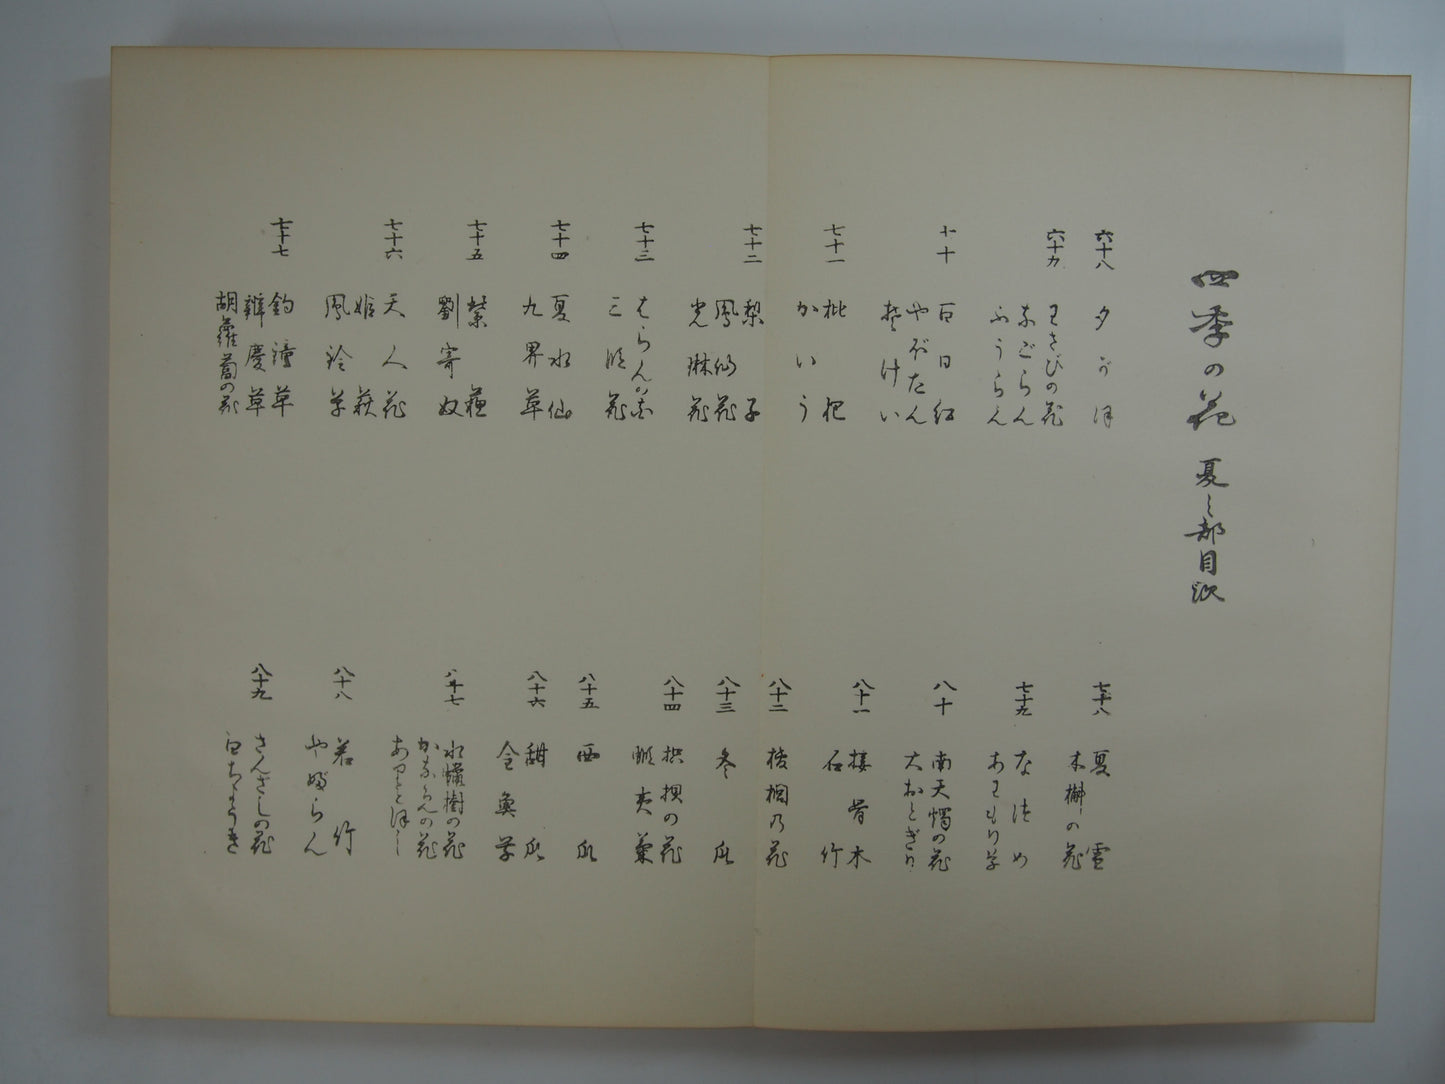 四季の花 夏之部目次
六十八 夕がほ
六十九 わさびの花
なごらん
ふうらん
七十 百日紅
やぶたん
そけい
七十一 枇杷
かいう
七十二 梨子
鳳仙花
光琳花
七十三 はらんの実
三時花
七十四 夏水仙
九界草
七十五 紫蘇
劉寄奴
七十六 天人花
姫萩
風鈴草
七十七 釣鐘草
辨慶草
胡蘿蔔の花
七十八 夏雪
木槲の花
七十九 なつめ
あわもり草
八十 南天燭の花
大おとぎり
八十一 接骨木
石竹
八十二 梧桐の花
八十三 冬瓜
八十四 枳椇の花
蝦夷菊
八十五 西瓜
八十六 甜瓜
金魚草
八十七 水蠟樹の花
かならんの花
八十八 若竹
やぶらん
八十九 さんざしの花
白ちようき